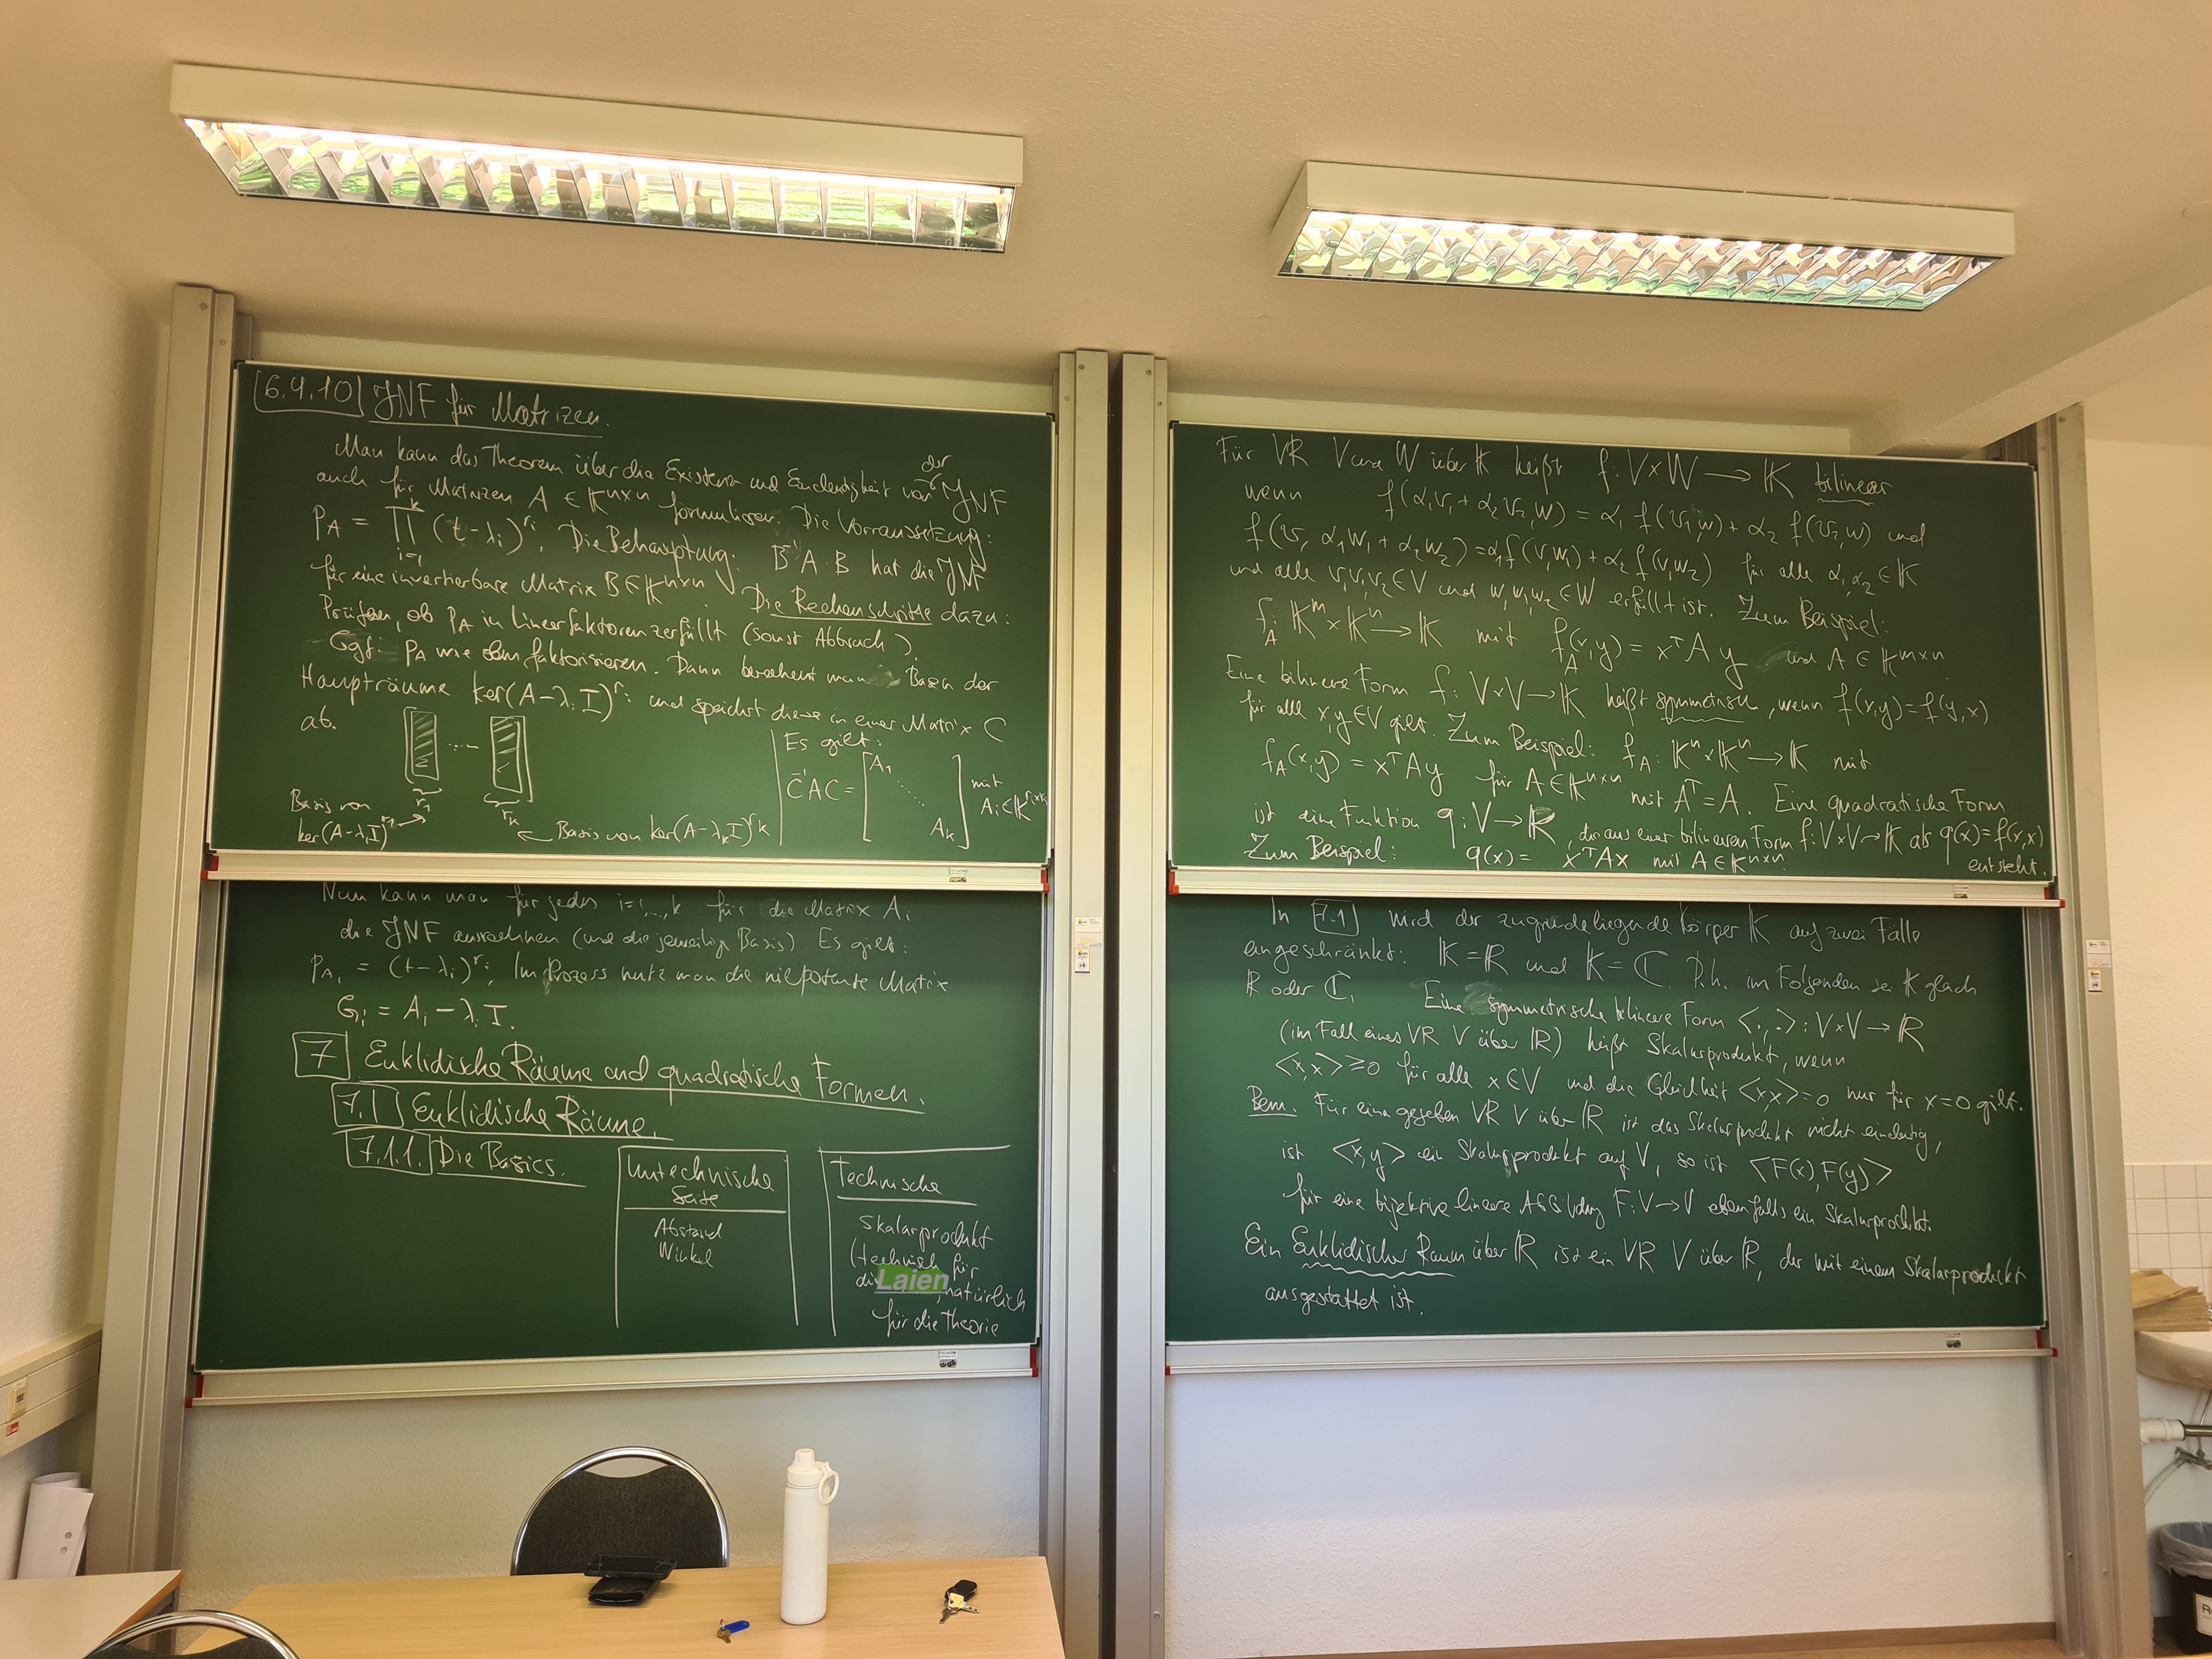 6.4.10 JNF für Matrizen.
Man kann das Theorem über die Existenz und Eindeutigkeit von der JNF
auch für Matrizen A ∈ K^{n×n} formulieren. Die Vorraussetzung:
P_A = ∏_{i=1}^{k} (t-λ_i)^{r_i}. Die Behauptung: B^{-1} A · B hat die JNF
für eine invertierbare Matrix B ∈ K^{n×n}. Die Rechenschritte dazu:
Prüfen, ob P_A in Linearfaktoren zerfällt (sonst Abbruch)
Ggf. P_A wie oben faktorisieren. Dann berechent man Basen der
Haupträume ker(A-λ_i I)^{r_i} und speichst diese in einer Matrix C
ab.
...
r_1 r_k
Basis von
ker(A-λ_1 I)^{r_1}
Basis von ker(A-λ_k I)^{r_k}
Es gilt:
C^{-1}AC = [A_1 ... A_k] mit
A_i ∈ K^{r_i×r_i}
Nun kann man für jedes i=1,...,k für die Matrix A_i
die JNF ausrechnen (und die jeweilige Basis) Es gilt:
P_{A_i} = (t-λ_i)^{r_i}. Im Prozess nutz man die nilpotente Matrix
G_i = A_i - λ_i I.
7 Euklidische Räume und quadratische Formen.
7.1 Euklidische Räume.
7.1.1. Die Basics.
Untechnische
Seite
Abstand
Winkel
Technische
Skalarprodukt
(technisch für
die Laien, natürlich
für die Theorie
Für VR V und W über K heißt f: V×W → K bilinear
wenn f(α_1v_1 + α_2v_2, w) = α_1 f(v_1,w) + α_2 f(v_2,w) und
f(v, α_1w_1 + α_2w_2) = α_1f(v,w_1) + α_2 f(v,w_2) für alle α_1,α_2 ∈ K
und alle v,v_1,v_2 ∈ V und w,w_1,w_2 ∈ W erfüllt ist. Zum Beispiel:
f_A: K^m × K^n → K mit f_A(x,y) = x^T A y und A ∈ K^{m×n}.
Eine bilineare Form f: V×V → K heißt symmetrisch, wenn f(x,y) = f(y,x)
für alle x,y ∈ V gilt. Zum Beispiel: f_A: K^n × K^n → K mit
f_A(x,y) = x^T A y für A ∈ K^{n×n} mit A^T = A. Eine quadratische Form
ist eine Funktion q: V → K, die aus einer bilinearen Form f: V×V → K als q(x) = f(x,x)
entsteht.
Zum Beispiel: q(x) = x^T A x mit A ∈ K^{n×n}.
In 7.1 wird der zugrundeliegende Körper K auf zwei Fälle
eingeschränkt: K = R und K = C. D.h. im Folgenden sei K glach
R oder C. Eine symmetrische bilineare Form <·,·>: V×V → R
(im Fall eines VR V über R) heißt Skalarprodukt, wenn
<x,x> ≥ 0 für alle x ∈ V und die Gleichheit <x,x> = 0 nur für x=0 gilt.
Bem. Für eine gegeben VR V über R ist das Skalarprodukt nicht eindeutig,
ist <x,y> ein Skalarprodukt auf V, so ist <F(x),F(y)>
für eine bijektive lineare Abbildung F: V → V ebenfalls ein Skalarprodukt.
Ein Euklidischer Raum über R ist ein VR V über R, der mit einem Skalarprodukt
ausgestattet ist.